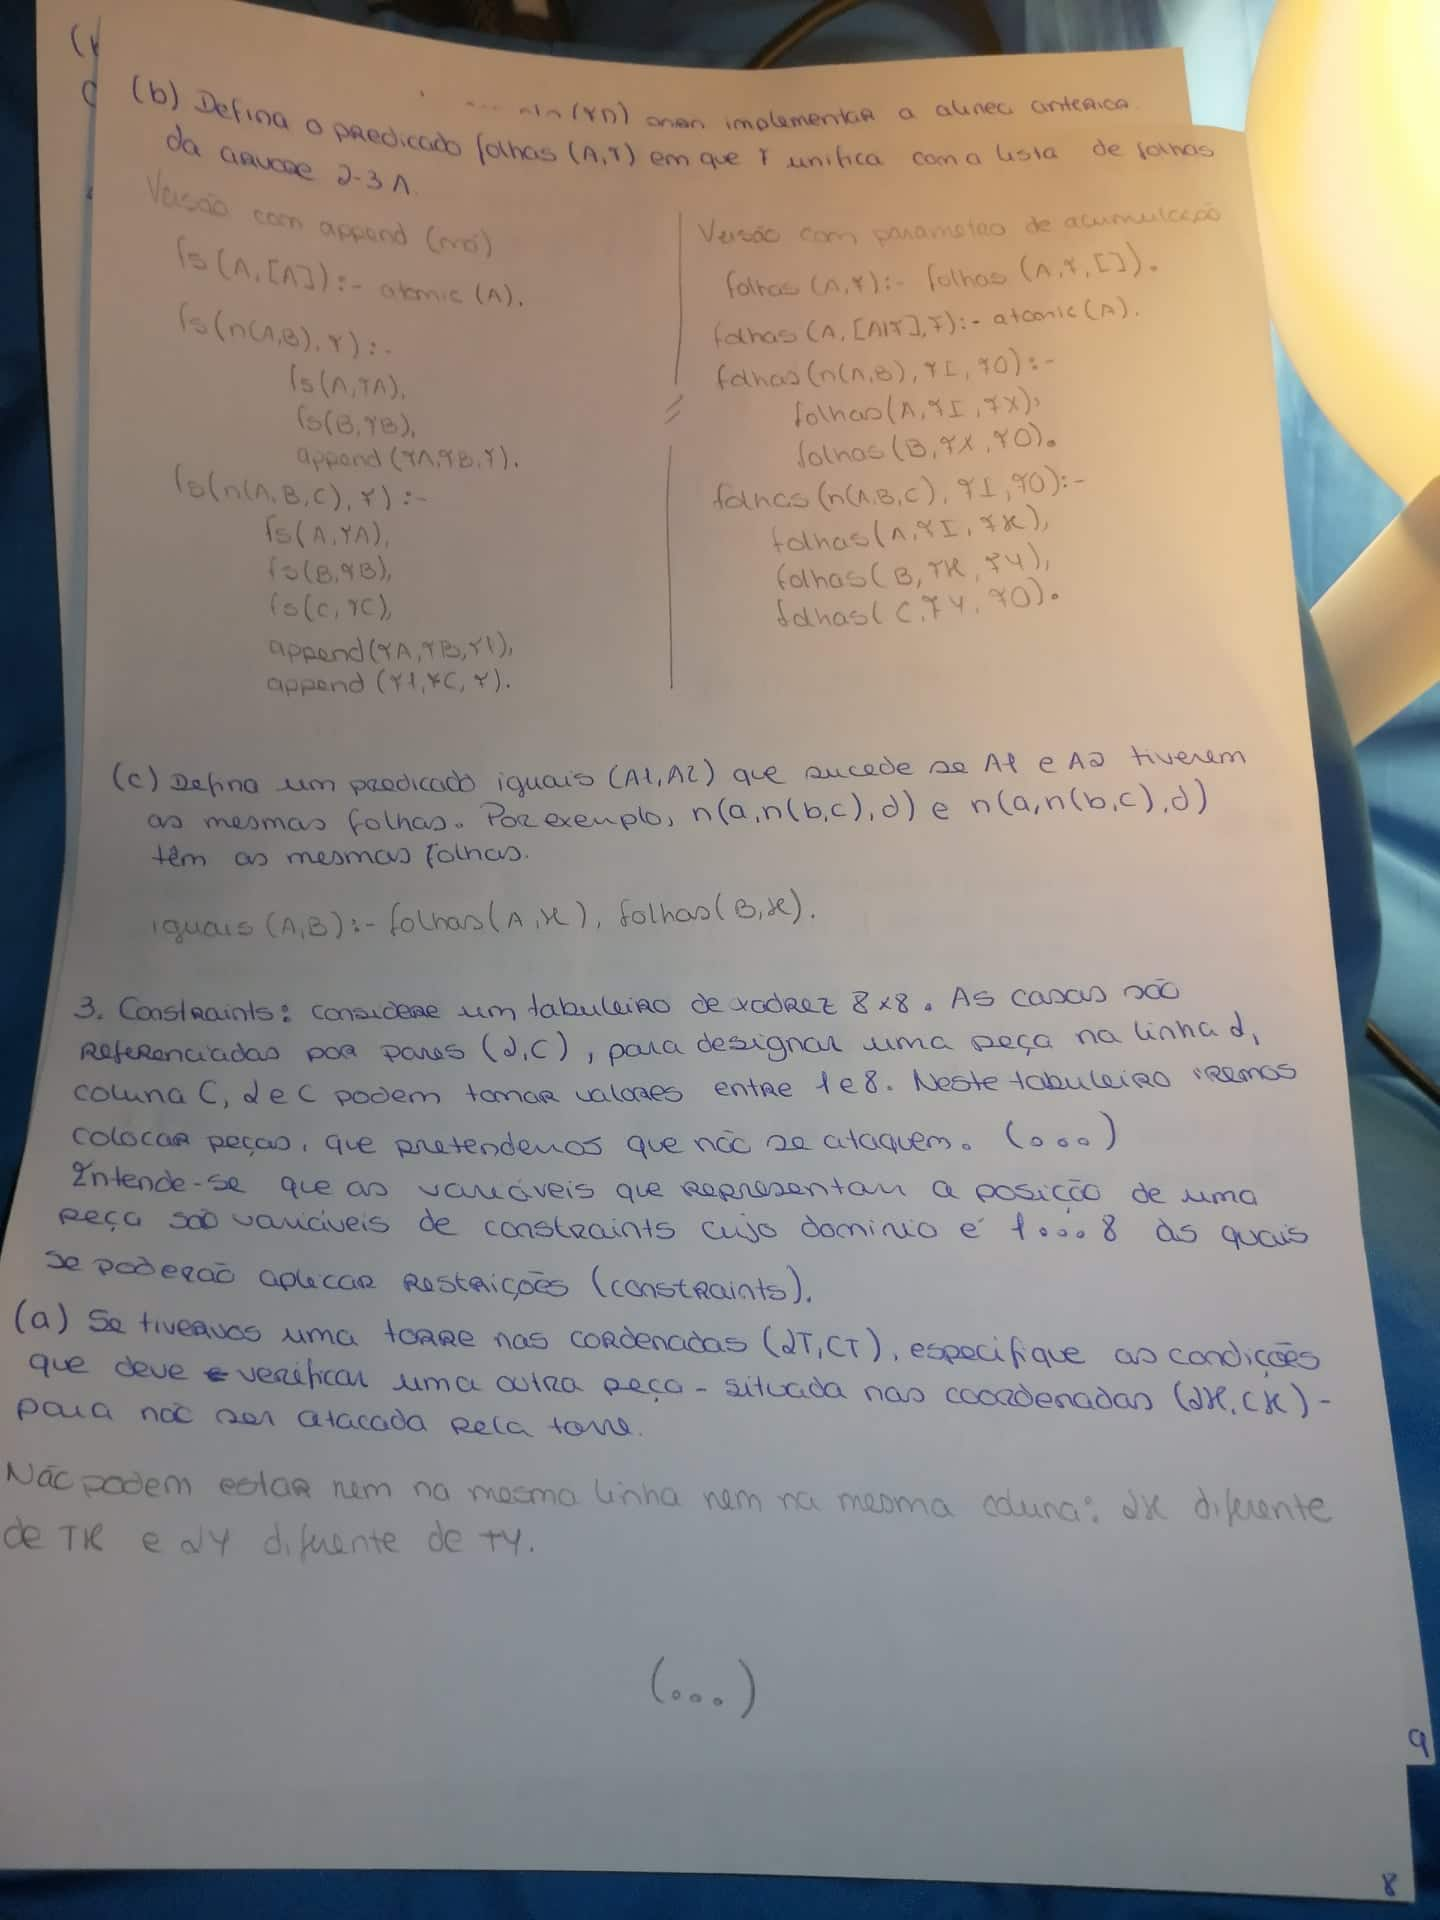 (b) Defina o predicado folhas (A,F) em que F unifica com a lista de folhas
implementar a alinea anterior.
da árvore 2-3 A.
Versão com append (má)
fs(A,[A]):- atomic (A).
fs(n(A,B), F) :-
fs(A,FA),
fs(B,FB),
append (FA,FB,F).
fs(n(A,B,C), F) :-
fs(A,FA),
fs(B,FB),
fs(C,FC),
append(FA,FB,F1),
append (F1,FC,F).
Versão com parametro de acumulação
folhas (A,F):- folhas (A,F,[]).
folhas (A,[A|F],F):- atomic(A).
folhas(n(A,B), FI, FO):-
folhas(A,FI,FX),
folhas(B,FX,FO).
folhas(n(A,B,C), FI,FO):-
folhas(A,FI,FX),
folhas(B,FX,FY),
folhas(C,FY,FO).
(c) Defina um predicado iguais (A1,A2) que sucede se A1 e A2 tiverem
as mesmas folhas. Por exemplo, n(a,n(b,c),d) e n(a,n(b,c),d)
têm as mesmas folhas.
iguais (A,B):- folhas(A,X), folhas(B,X).
3. Constraints: considere um tabuleiro de xadrez 8x8. As casas são
referenciadas por pares (L,C), para designar uma peça na linha L,
coluna C, L e C podem tomar valores entre 1 e 8. Neste tabuleiro iremos
colocar peças, que pretendemos que não se ataquem. (...)
Entende-se que as variáveis que representam a posição de uma
peça são variáveis de constraints cujo dominio é 1...8 às quais
se poderão aplicar restrições (constraints).
(a) Se tivermos uma torre nas cordenadas (LT,CT), especifique as condições
que deve verificar uma outra peça - situada nas coordenadas (LX,CX) -
para não ser atacada pela torre.
Não podem estar nem na mesma linha nem na mesma coluna: LX diferente
de TX e LY diferente de TY.
(...)
9
8